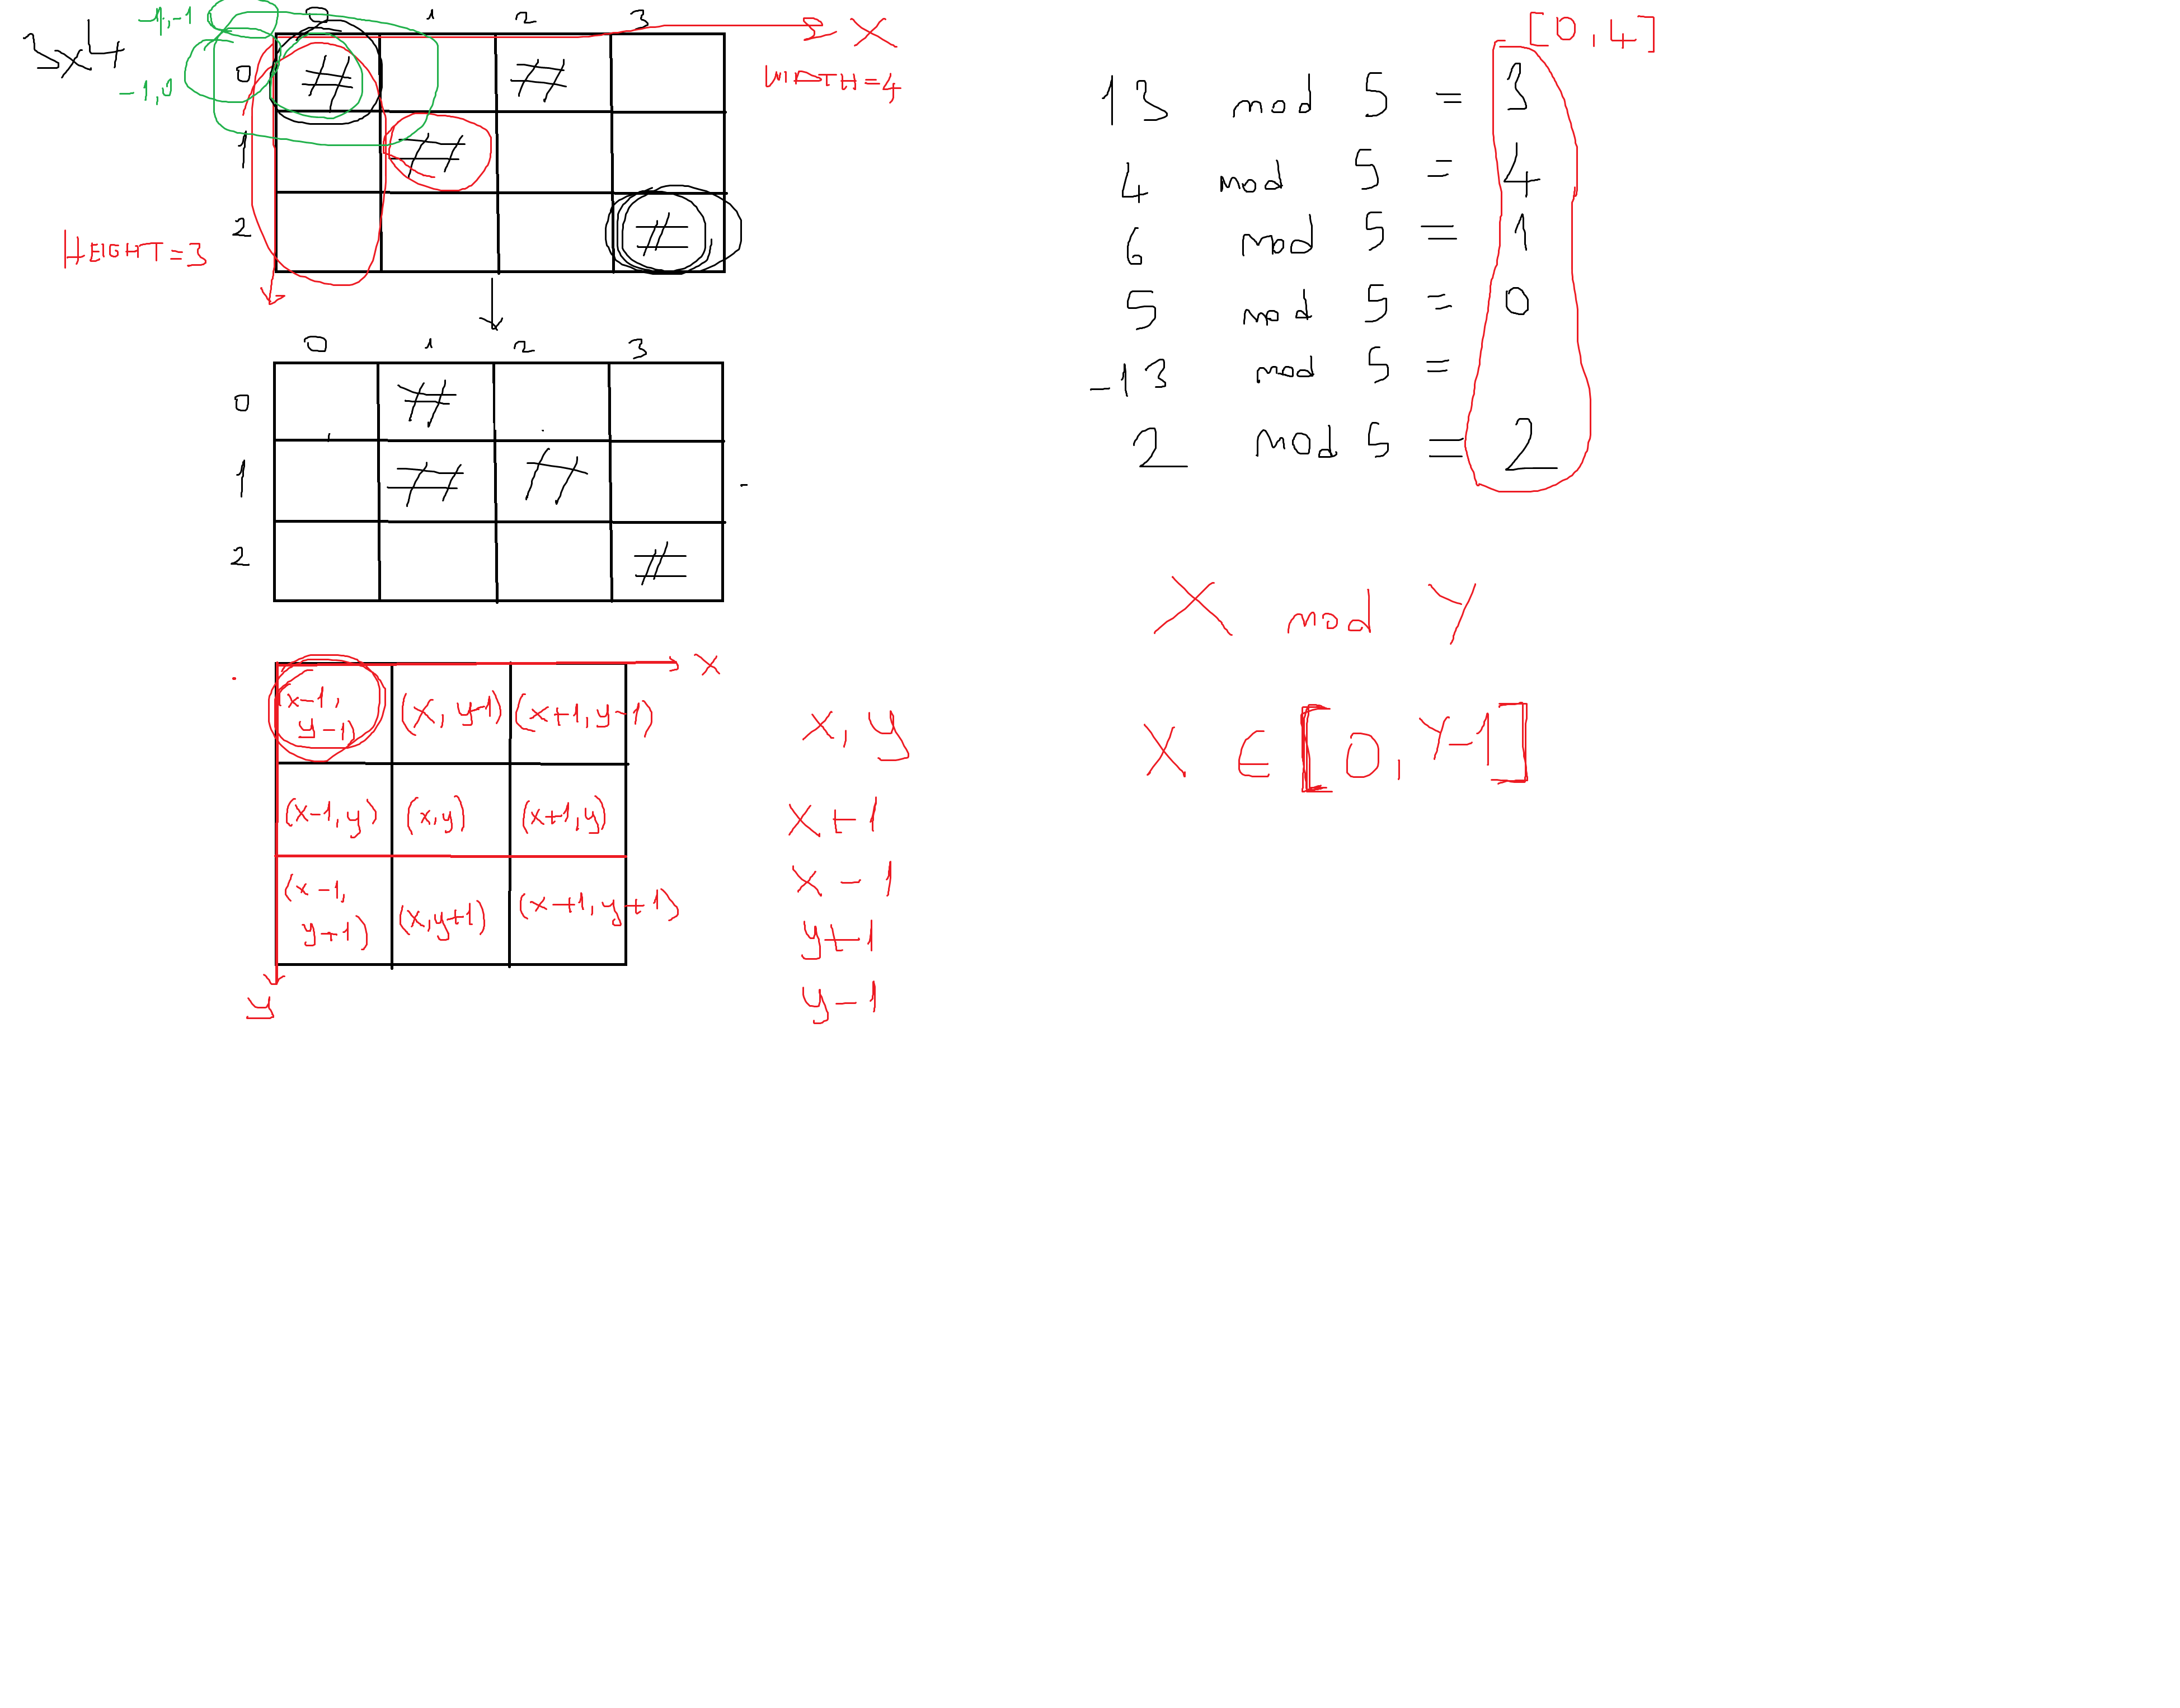 3x4
-1,-1
-1,0
0 1 2 3
X
WIDTH=4
0 # #
1 #
2 #
HEIGHT=3
0 1 2 3
0 #
1 # #
2 #
x
(x-1, y-1) (x, y-1) (x+1, y-1)
(x-1, y) (x,y) (x+1, y)
(x-1, y+1) (x,y+1) (x+1, y+1)
y
x, y
x+1
x-1
y+1
y-1
[0,4]
13 mod 5 = 3
4 mod 5 = 4
6 mod 5 = 1
5 mod 5 = 0
-13 mod 5 =
2 mod 5 = 2
X mod Y
X ∈ [0, Y-1]